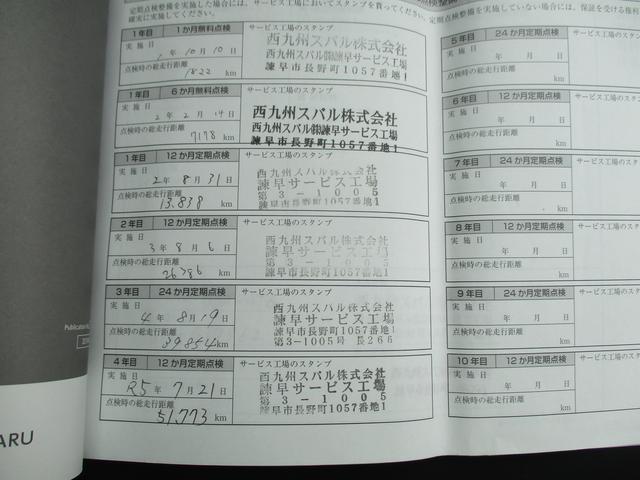 定期点検整備を実施した場合には、サービス工場においてスタンプを貰ってください。定期点検整備を実施していない場合には、保証を受ける権利
確実に実施してください。
1年目 1か月無料点検 サービス工場のスタンプ
実施日
1年10月10日
点検時の総走行距離
1822 km
西九州スバル株式会社
西九州スバル㈱諫早サービス工場
諫早市長野町1057番地1
1年目 6か月無料点検 サービス工場のスタンプ
実施日
2年2月14日
点検時の総走行距離
7178 km
西九州スバル株式会社
西九州スバル㈱諫早サービス工場
諫早市長野町1057番地1
1年目 12か月定期点検 サービス工場のスタンプ
実施日
2年8月31日
点検時の総走行距離
13,838 km
西九州スバル株式会社
諫早サービス工場
第3-1005
諫早市長野町1057番地1
2年目 12か月定期点検 サービス工場のスタンプ
実施日
3年8月6日
点検時の総走行距離
26386 km
西九州スバル株式会社
諫早サービス工場
第3-1005
諫早市長野町1057番地1
3年目 24か月定期点検 サービス工場のスタンプ
実施日
4年8月19日
点検時の総走行距離
39854 km
西九州スバル株式会社
諫早サービス工場
諫早市長野町1057番地1
第3-1005号 長265
4年目 12か月定期点検 サービス工場のスタンプ
実施日
R5年7月21日
点検時の総走行距離
51,773 km
西九州スバル株式会社
諫早サービス工場
第3-1005
諫早市長野町1057番地1
5年目 24か月定期点検 サービス工場のスタンプ
実施日
年 月 日
点検時の総走行距離
km
6年目 12か月定期点検 サービス工場のスタンプ
実施日
年 月 日
点検時の総走行距離
km
7年目 24か月定期点検 サービス工場のスタンプ
実施日
年 月 日
点検時の総走行距離
km
8年目 12か月定期点検 サービス工場のスタンプ
実施日
年 月 日
点検時の総走行距離
km
9年目 24か月定期点検 サービス工場のスタンプ
実施日
年 月 日
点検時の総走行距離
km
10年目 12か月定期点検 サービス工場のスタンプ
実施日
年 月 日
点検時の総走行距離
km
ARU